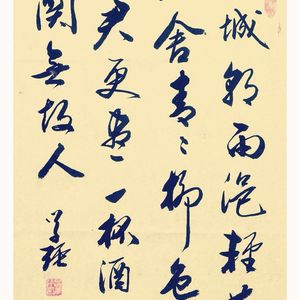 城朝雨浥輕
舍青〻柳色
君更盡一杯酒
関無故人